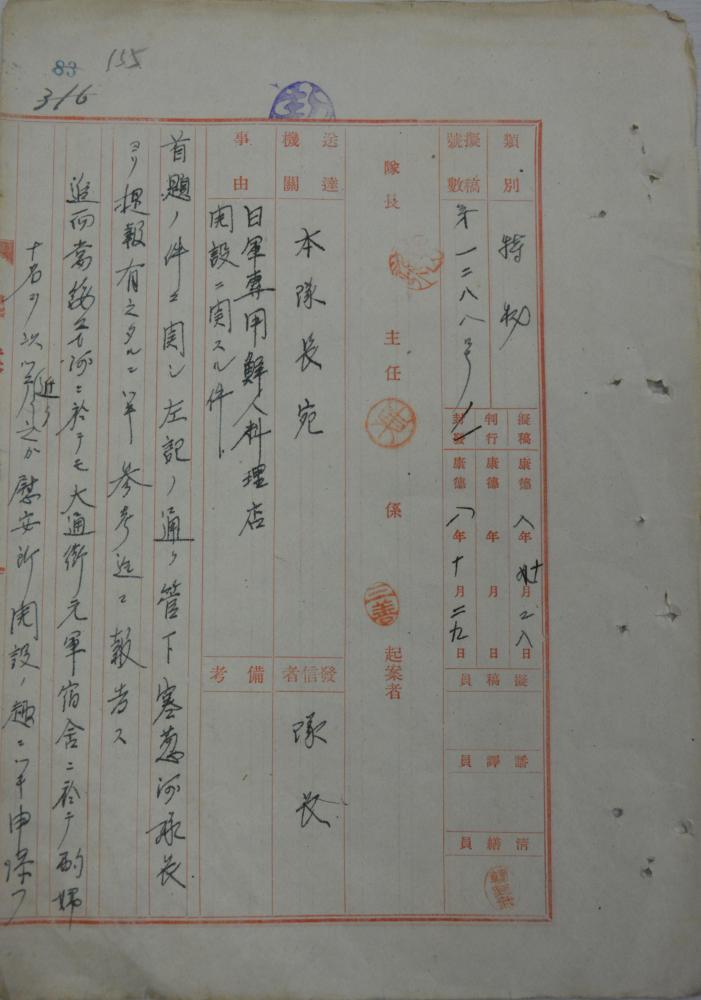 155
83
316
類別 特秘
擬稿號數 第一二八八号ノ一
擬稿 康德 八年 十月 二八日
判行 康德 年 月 日
封發 康德 八年 十月 二九日
擬稿員
譯員
清繕員
隊長
主任
係
三善
起案者
送達機關 本隊長宛
發信者 隊長
事由 日軍專用鮮人料理店
開設ニ関スル件
備考
首題ノ件ニ関シ左記ノ通リ管下寒葱河隊長
ヨリ提報有之タルニ付参考迄ニ報告ス
追而當綏芬河ニ於テモ大通街元軍宿舎ニ於テ酌婦
十名
近ク之カ慰安所開設ノ趣ニ付申添フ